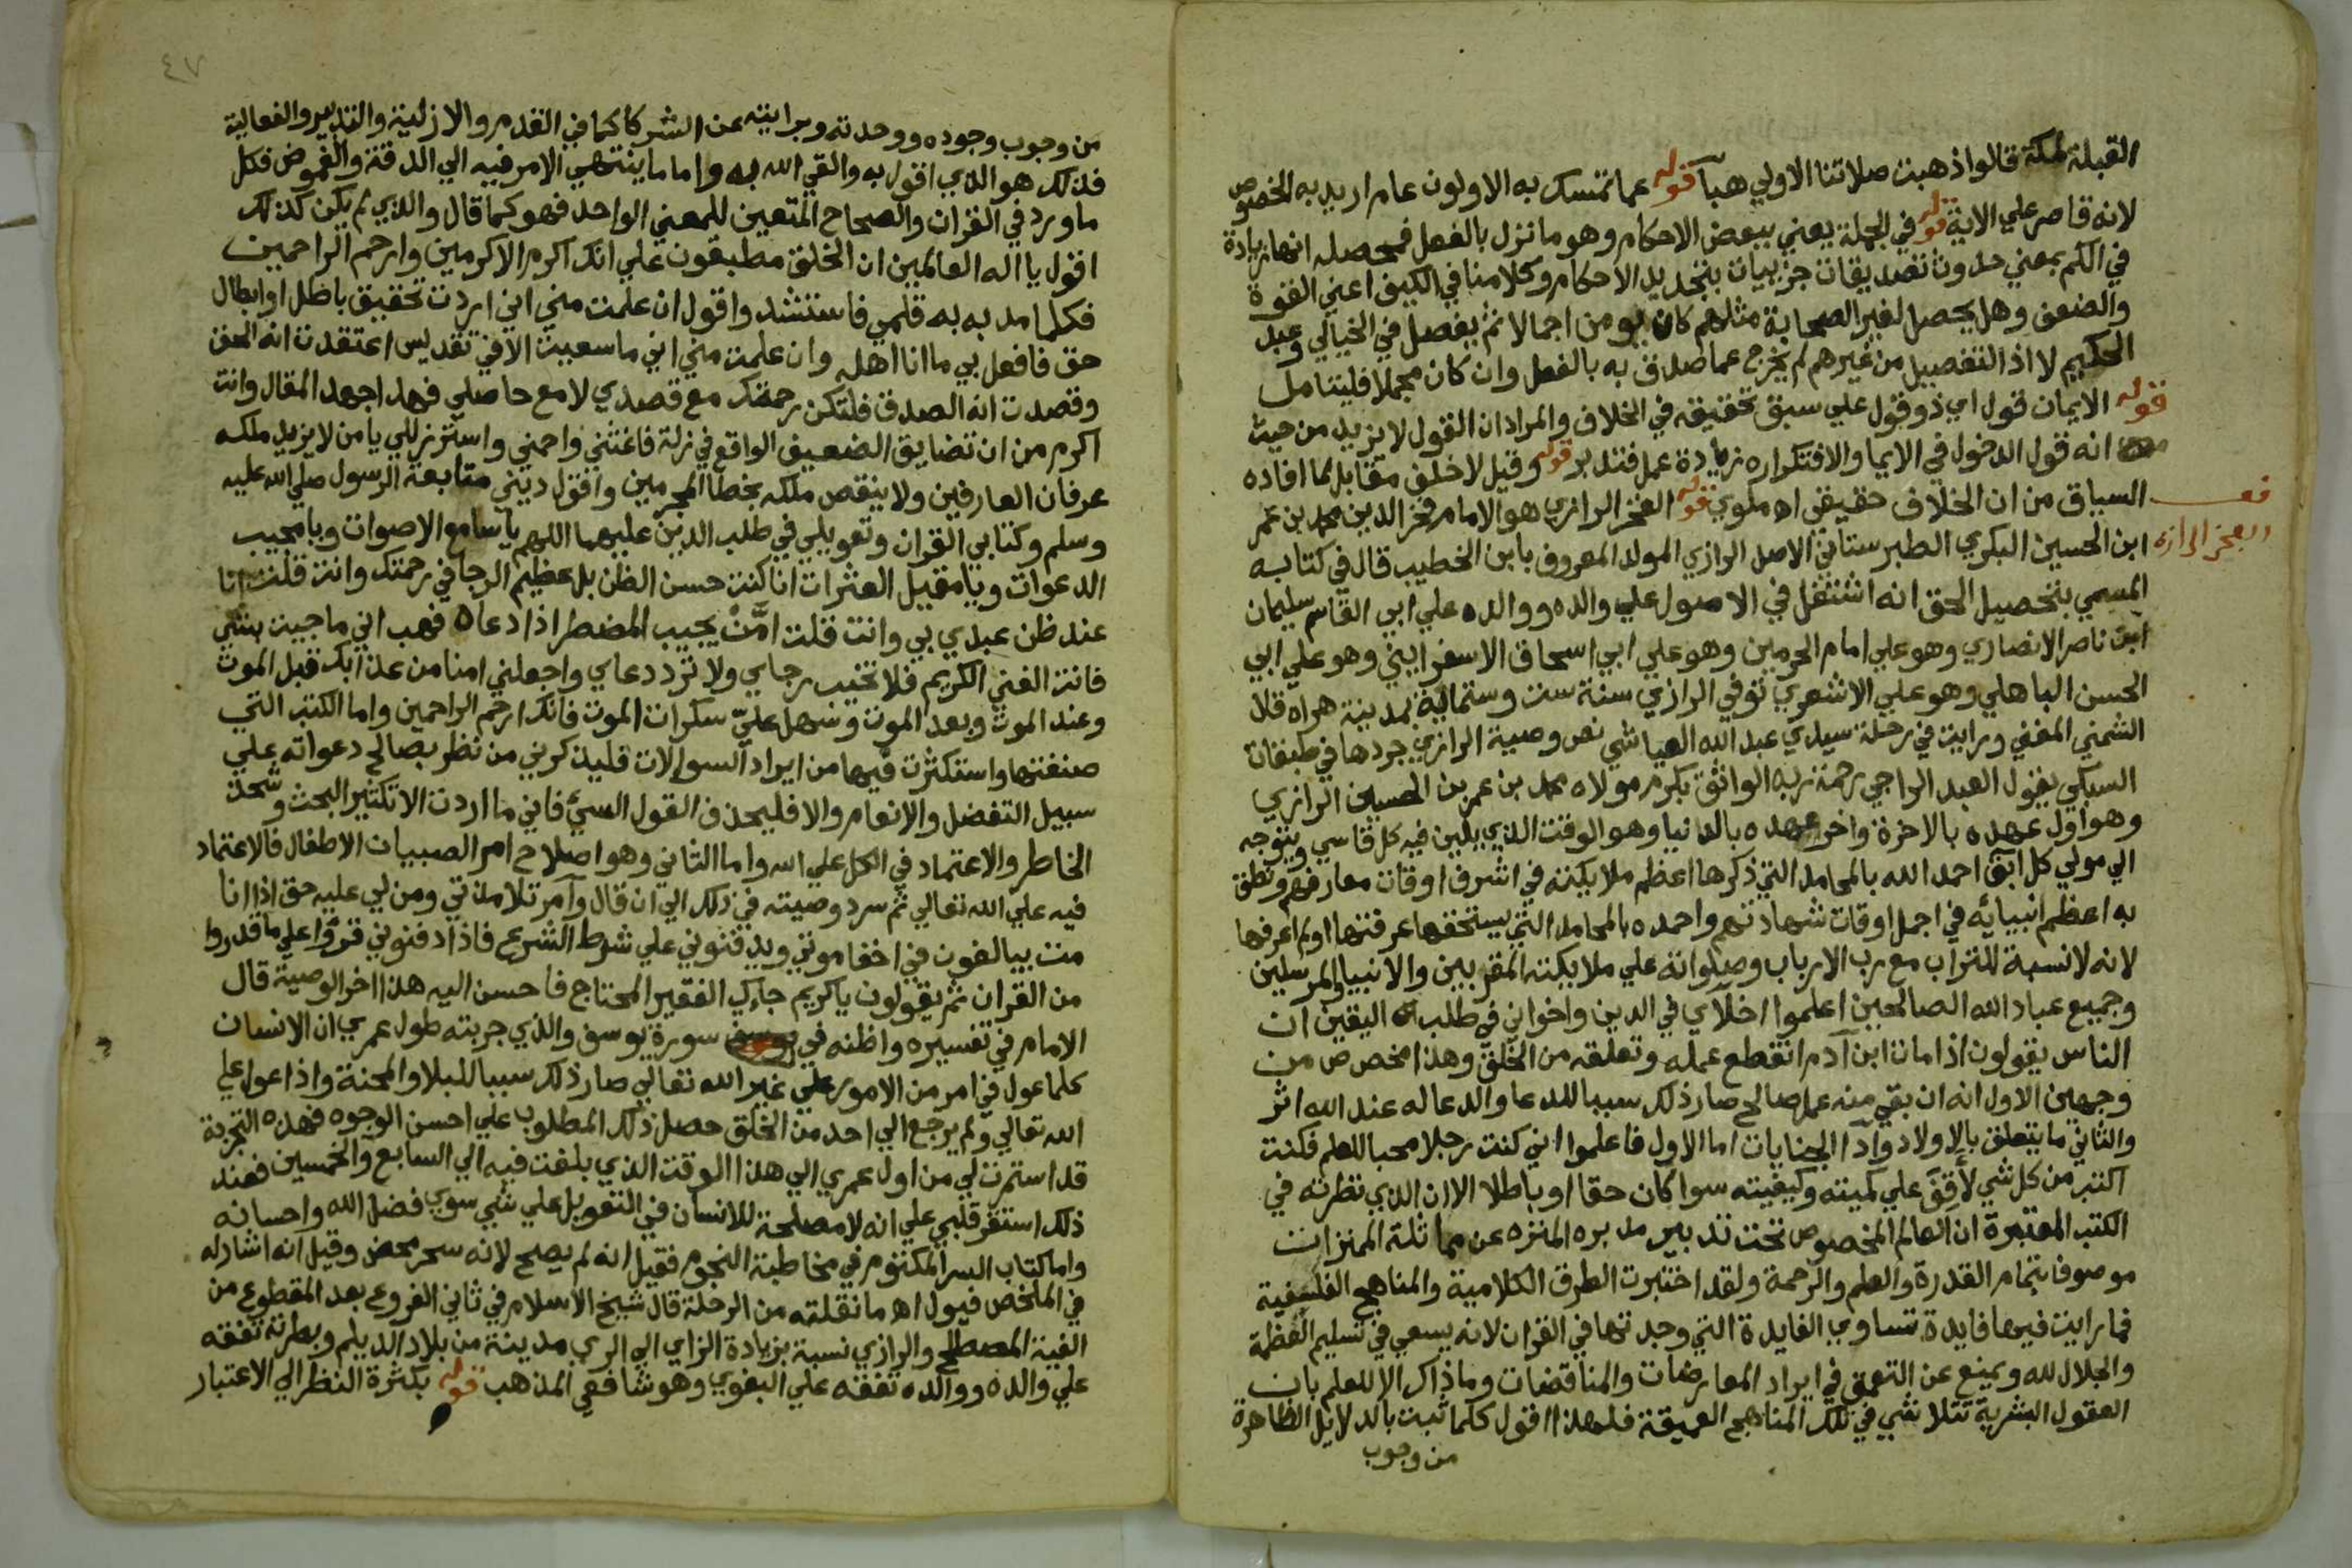 القبلة لمكة قالوا ذهبت صلاتنا الاولي هبآ قوله عما تمسك به الاولون عام اريد به الخصوص
لانه قاصر علي الاية قوله في الجملة يعني ببعض الاحكام وهو ما نزل بالفعل فمحصله انها زيادة
في الكم بمعني حدوث تصديقات جزييات بتجديد الاحكام وكلامنا في الكيف اعني القوة
والضعف وهل يحصل لغير الصحابة مثلهم كان يومن اجمالا ثم يفصل في الخيالي وعبد
الحكيم لا اذ التفصيل من غيرهم لم يخرج عما صدق به بالفعل وان كان مجملا فليتامل
قوله الايمان قول اي ذو قول علي سبق تحقيقه في الخلاف والمراد ان القول لا يزيد من حيث
انه قول الدخول في الايما والافتكراره زيادة عمل فتدبر قوله وقيل لا خلف مقابل لما افاده
السياق من ان الخلاف حقيقي اه ملوي قوله الفخر الرازي هو الامام فخر الدين محمد بن عمر
الفخر الرازي
ابن الحسين البكري الطبرستاني الاصل الرازي المولد المعروف بابن الخطيب قال في كتابه
المسمي بتحصيل الحق انه اشتغل في الاصول علي والده ووالده علي ابي القاسم سليمان
ابن ناصر الانصاري وهو علي امام الحرمين وهو علي ابي اسحاق الاسفرايني وهو علي ابي
الحسن الباهلي وهو علي الاشعري توفي الرازي سنة ست وستماية بمدينة هراه قال
الشمني المغني ورايت في رحلة سيدي عبد الله العياشي نص وصية الرازي جردها في طبقات
السبكي يقول العبد الراجي رحمة ربه الواثق بكرم مولاه محمد بن عمر بن الحسين الرازي
وهو اول عهده بالاخرة واخر عهده بالدنيا وهو الوقت الذي يلين فيه كل قاسي ويتوجه
الي مولي كل ابق احمد الله بالمحامد التي ذكرها اعظم ملايكته في اشرف اوقات معارفهم ونطق
به اعظم انبيائه في اجمل اوقات شهادتهم واحمده بالمحامد التي يستحقها عرفتها او لم اعرفها
لانه لا نسبة للتراب مع رب الارباب وصلواته علي ملايكته المقربين والانبيا والمرسلين
وجميع عباد الله الصالحين اعلموا اخلاي في الدين واخواني في طلب اليقين ان
الناس يقولون اذا مات ابن آدم انقطع عمله وتعلقه من الخلق وهذا مخصص من
وجهين الاول انه ان بقي منه عمل صالح صار ذلك سببا للدعا والدعا له عند الله اثر
والثاني ما يتعلق بالاولاد وادا الجنايات اما الاول فاعلموا اني كنت رجلا محبا للعلم فكنت
اكتب من كل شي لأقف علي كميته وكيفيته سوا كان حقا او باطلا الا ان الذي نظرته في
الكتب المعتبرة ان العالم المخصوص تحت تدبير مدبره المنزه عن مماثلة المنزات
موصوفا بتمام القدرة والعلم والرحمة ولقد اختبرت الطرق الكلامية والمناهج الفلسفية
فما رايت فيها فايدة تساوي الفايدة التي وجدتها في القران لانه يسعي في تسليم العظمة
والجلال لله ويمنع عن التعمق في ايراد المعارضات والمناقضات وما ذاك الا للعلم بان
العقول البشرية تتلاشي في تلك المناهج العميقة فلهذا اقول كلما ثبت بالدلايل الظاهرة
من وجوب
٤٧
من وجوب وجوده ووحدته وبرايته عن الشركا كما في القدم والازلية والتدبير والفعالية
فذلك هو الذي اقول به والقي الله به واما ما ينتهي الامر فيه الي الدقة والغموض فكل
ما ورد في القران والصحاح المتعين للمعني الواحد فهو كما قال والذي لم يكن كذلك
اقول يا اله العالمين ان الخلق مطبقون علي انك اكرم الاكرمين وارحم الراحمين
فكلما مد به به قلمي فاستشد واقول ان علمت مني اني اردت تحقيق باطل او ابطال
حق فافعل بي ما انا اهله وان علمت مني اني ما سعيت الا في تقديس اعتقدت انه الحق
وقصدت انه الصدق فلتكن رحمتك مع قصدي لا مع حاصلي فهذا جهد المقال وانت
اكرم من ان تضايق الضعيف الواقع في زلة فاغثني واحمني واستر زللي يا من لا يزيد ملكه
عرفان العارفين ولا ينقص ملكه بخطا المجرمين واقول ديني متابعة الرسول صلي الله عليه
وسلم وكتابي القران وتعويلي في طلب الدين عليهما اللهم يا سامع الاصوات ويا مجيب
الدعوات ويا مقيل العثرات انا كنت حسن الظن بل عظيم الرجا في رحمتك وانت قلت انا
عند ظن عبدي بي وانت قلت امّنْ يجيب المضطر اذا دعاه فهب اني ما جيت بشي
فانت الغني الكريم فلا تخيب رجاي ولا ترد دعاي واجعلني امنا من عذابك قبل الموت
وعند الموت وبعد الموت وسهل عليّ سكرات الموت فانك ارحم الراحمين واما الكتب التي
صنفتها واستكثرت فيها من ايراد السوالات فليذكرني من نظر بصالح دعواته علي
سبيل التفضل والانعام والا فليحذف القول السيء فاني ما اردت الا تكثير البحث وشحذ
الخاطر والاعتماد في الكل علي الله واما الثاني وهو اصلاح امر الصبيان الاطفال فالاعتماد
فيه علي الله تعالي ثم سرد وصيته في ذلك الي ان قال وآمر تلامذتي ومن لي عليه حق اذا انا
مت يبالغون في اخفا موتي ويدفنوني علي شرط الشرع فاذا دفنوني قرؤا علي ما قدروا
من القران ثم يقولون يا كريم جاءك الفقير المحتاج فاحسن اليه هذا اخر الوصية قال
الامام في تفسيره واظنه في سورة يوسف والذي جربته طول عمري ان الانسان
كلما عول في امر من الامور علي غير الله تعالي صار ذلك سببا للبلا والمحنة واذا عول علي
الله تعالي ولم يرجع الي احد من الخلق حصل ذلك المطلوب علي احسن الوجوه فهذه التجربة
قد استمرت لي من اول عمري الي هذا الوقت الذي بلغت فيه الي السابع والخمسين فعند
ذلك استقر قلبي علي انه لا مصلحة للانسان في التعويل علي شي سوي فضل الله واحسانه
واما كتاب السر المكتوم في مخاطبة النجوم فقيل انه لم يصح لانه سحر محض وقيل انه اشار له
في الملخص فيول اه ما نقلته من الرحلة قال شيخ الاسلام في ثاني الفروع بعد المقطوع من
الفية المصطلح والرازي نسبة بزيادة الزاي الي الري مدينة من بلاد الديلم وبطرته تفقه
علي والده ووالده تفقه علي البغوي وهو شافعي المذهب قوله بكثرة النظر الي الاعتبار